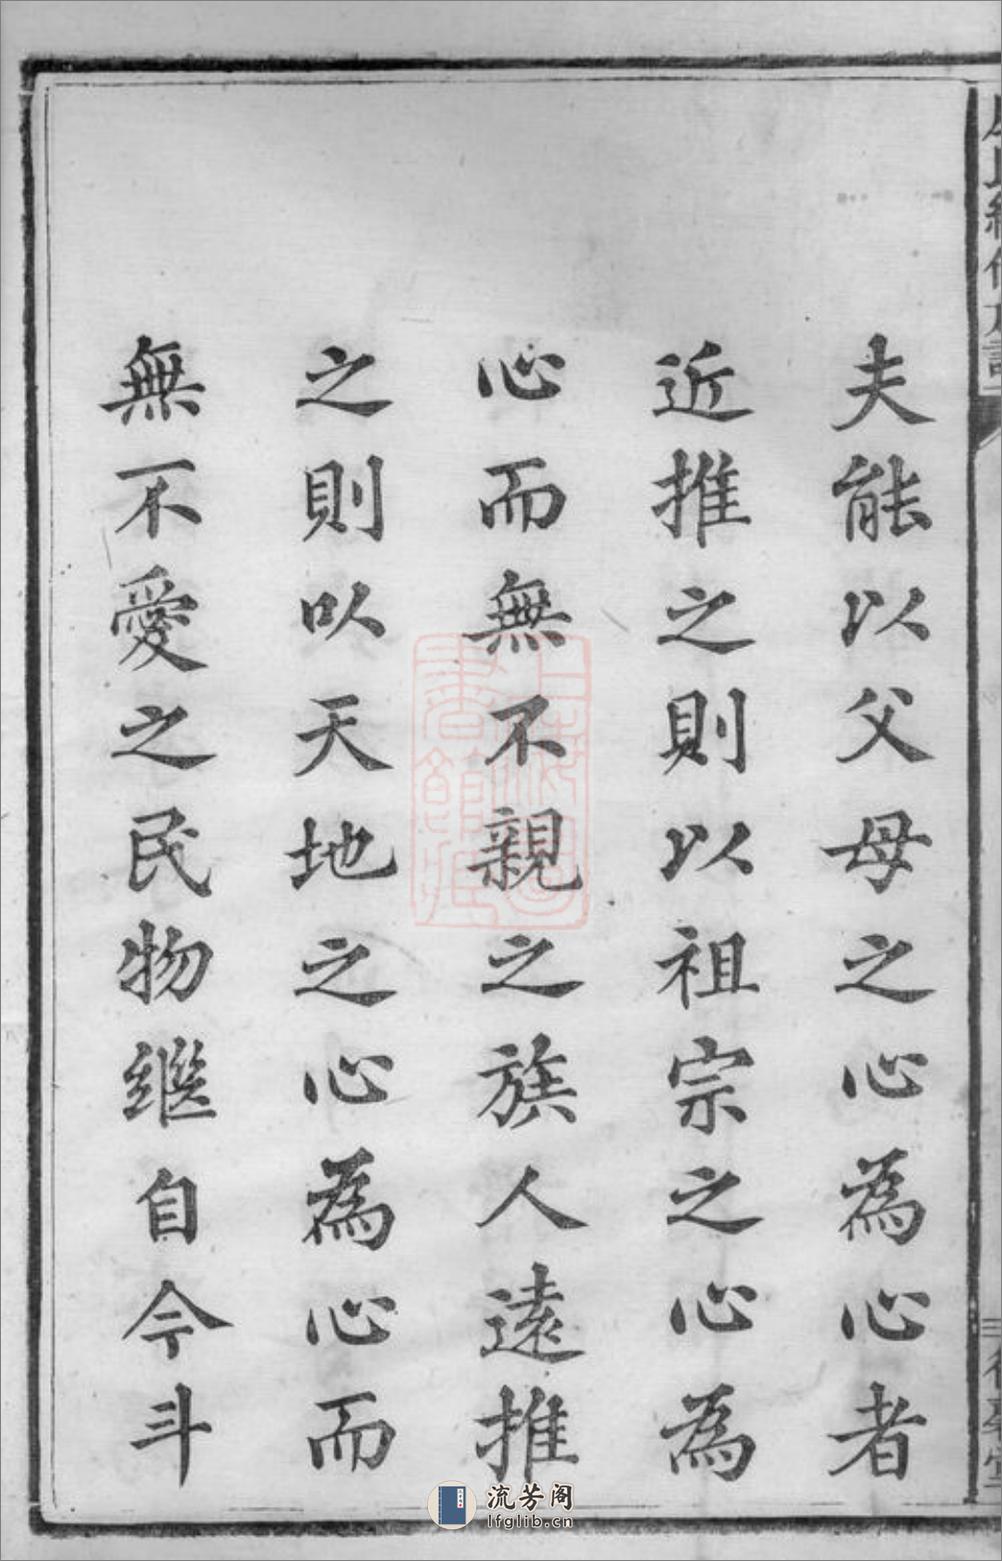 夫能以父母之心為心者
近推之則以祖宗之心為
心而無不親之族人遠推
之則以天地之心為心而
無不愛之民物繼自今斗
上海圖書館藏
流芳阁
lfglib.cn